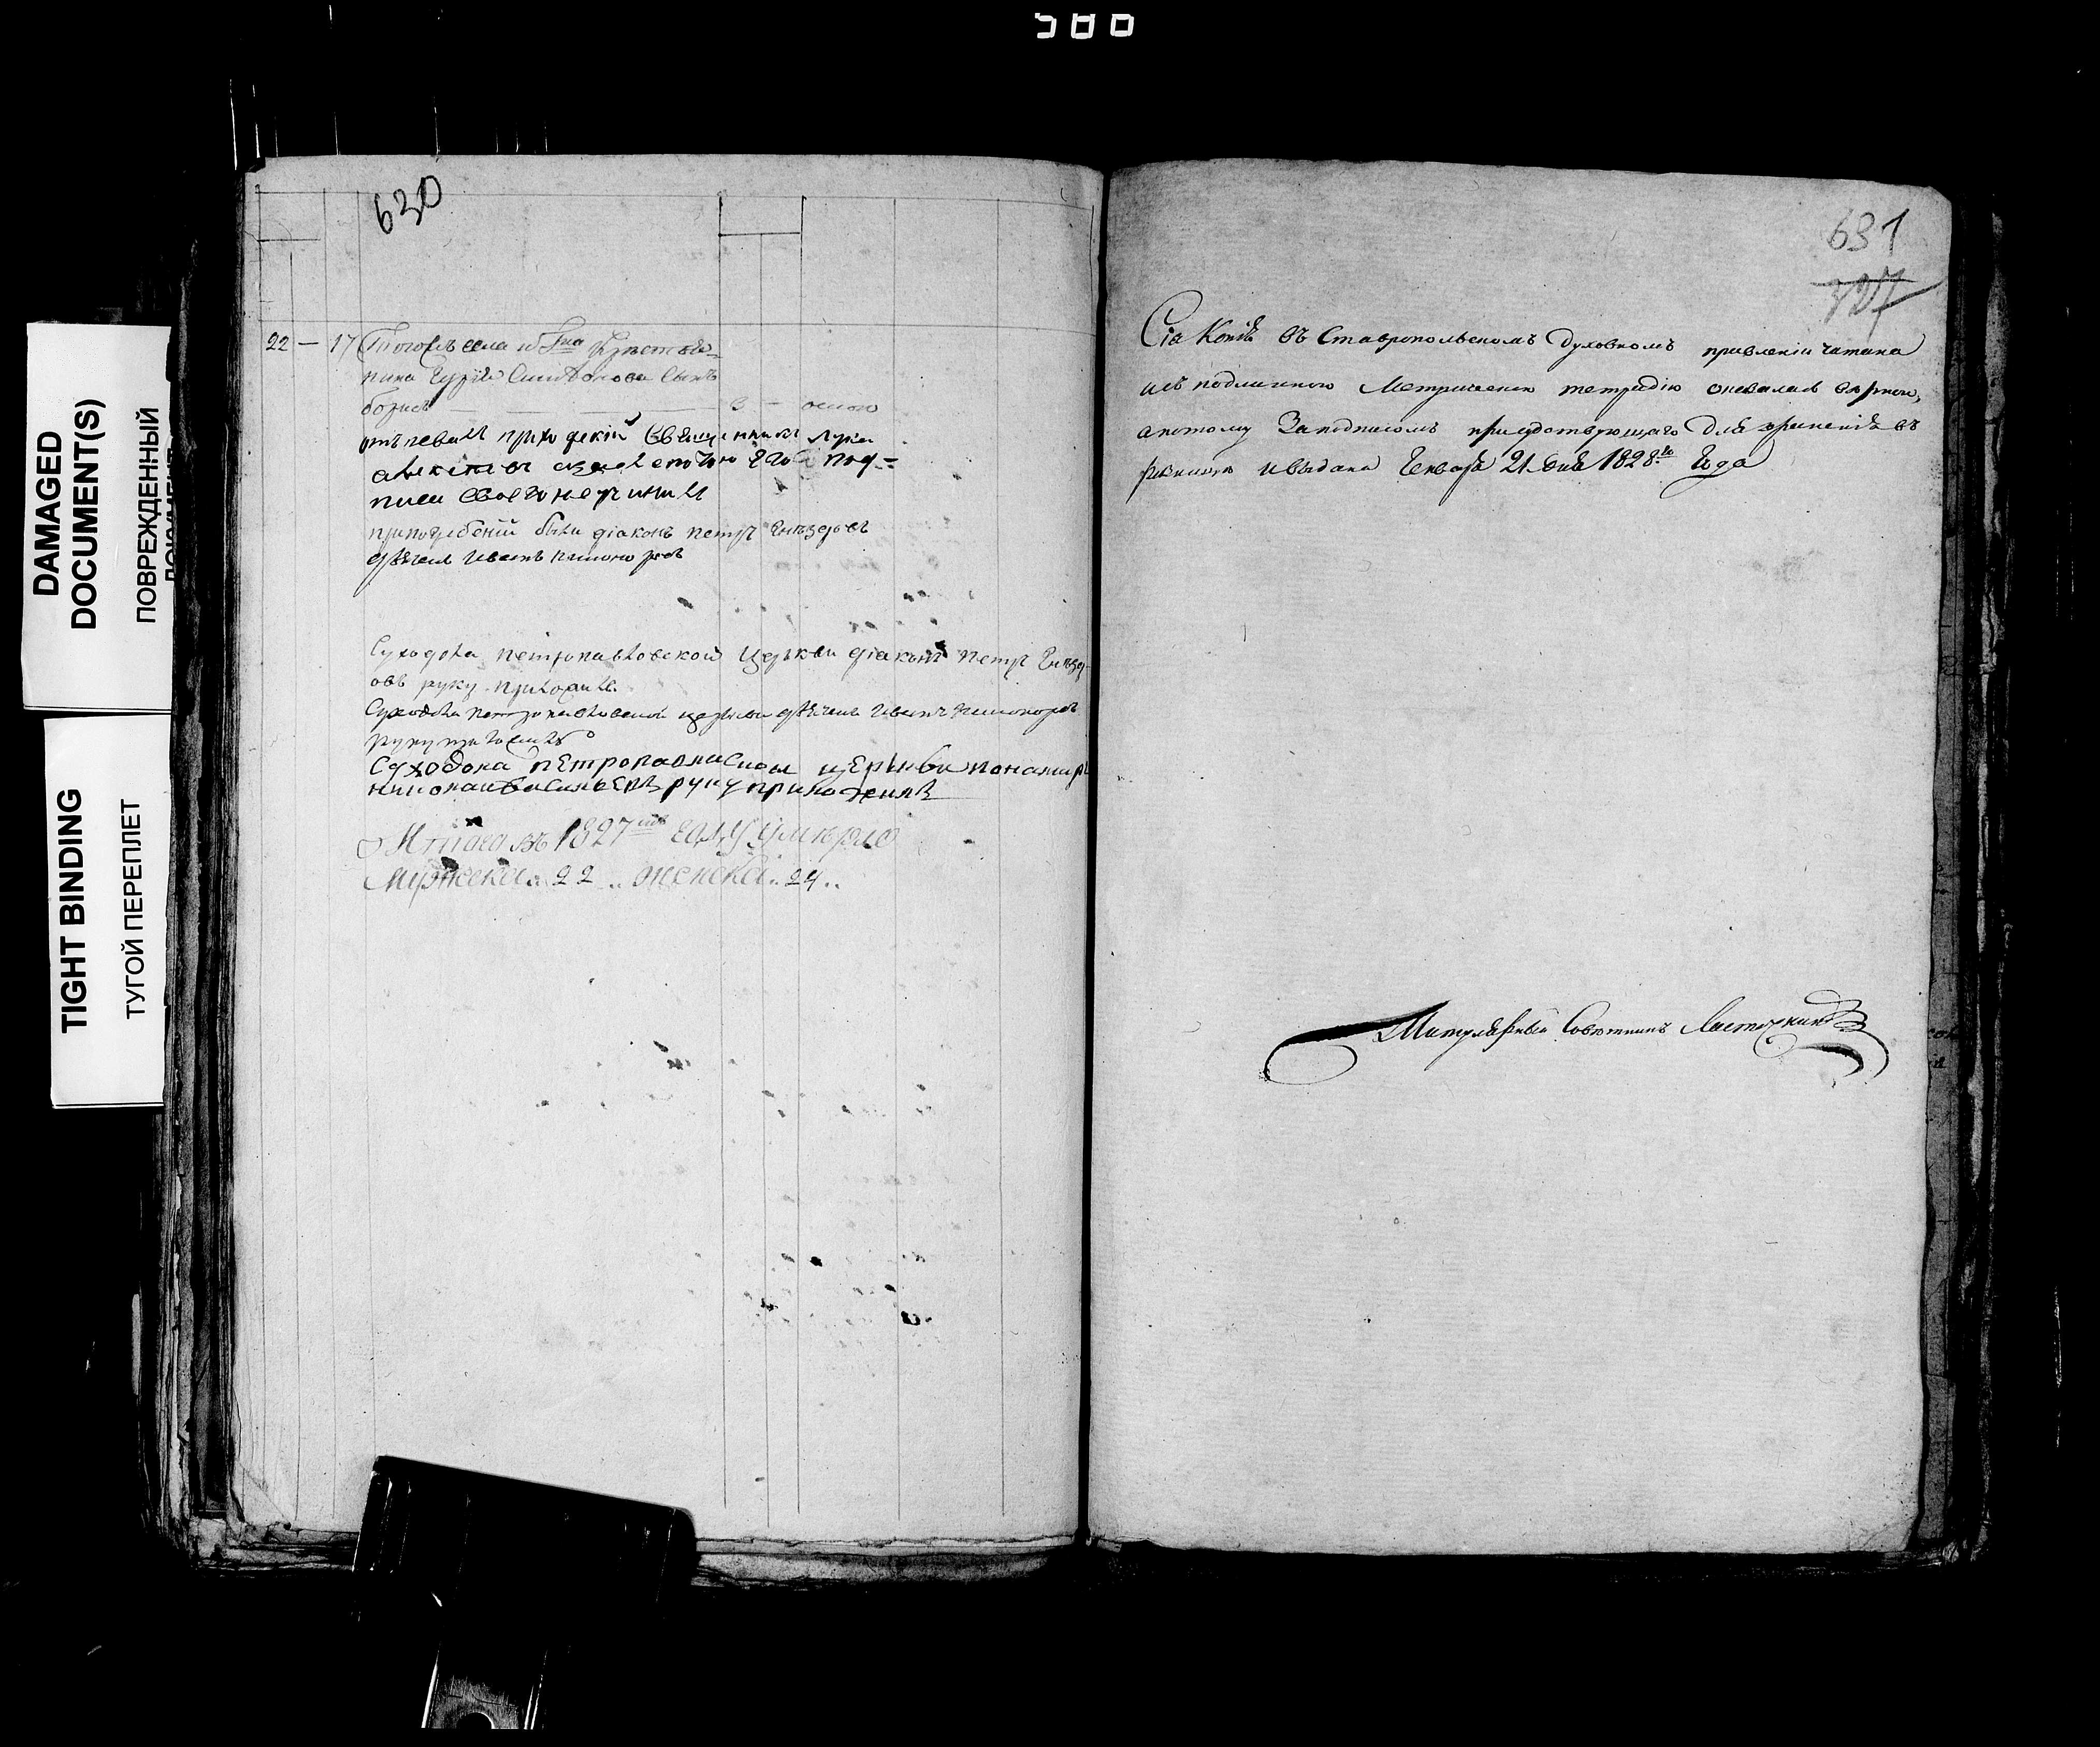 586
DAMAGED
DOCUMENT(S)
ПОВРЕЖДЕННЫЙ
TIGHT BINDING
ТУГОЙ ПЕРЕПЛЕТ
630
22 — 17 Тогожъ села и Гна Крестья-
нина сынъ
борисъ — 3 — оспою
отпевалъ приходскій священникъ лука
алексѣевъ его под-
писи своего не чинилъ
припогребеніи были діаконъ петръ Гнѣздовъ
дьячекъ Иванъ
Суходола петропавловской Церкви діаконъ петръ Гнѣзд-
овъ руку приложилъ
Суходола петропавловской церкви дьячекъ Иванъ
руку приложилъ
Суходола петропавлиской церькви понамарь
николай васильевъ руку приложилъ
Итого въ 1827мъ году умерло
Мужеска .. 22 .. женска .. 24 ..
631
327
Сія Копія въ Ставропольскомъ Духовномъ правленіи читана
исъ подлинною Метрическою тетрадью оказалась верною,
апотому Заподписомъ присудствующаго Для храненія въ
ризницу ивыдана Генваря 21 дня 1828го Года
Титулярный Советникъ Ласточкинъ